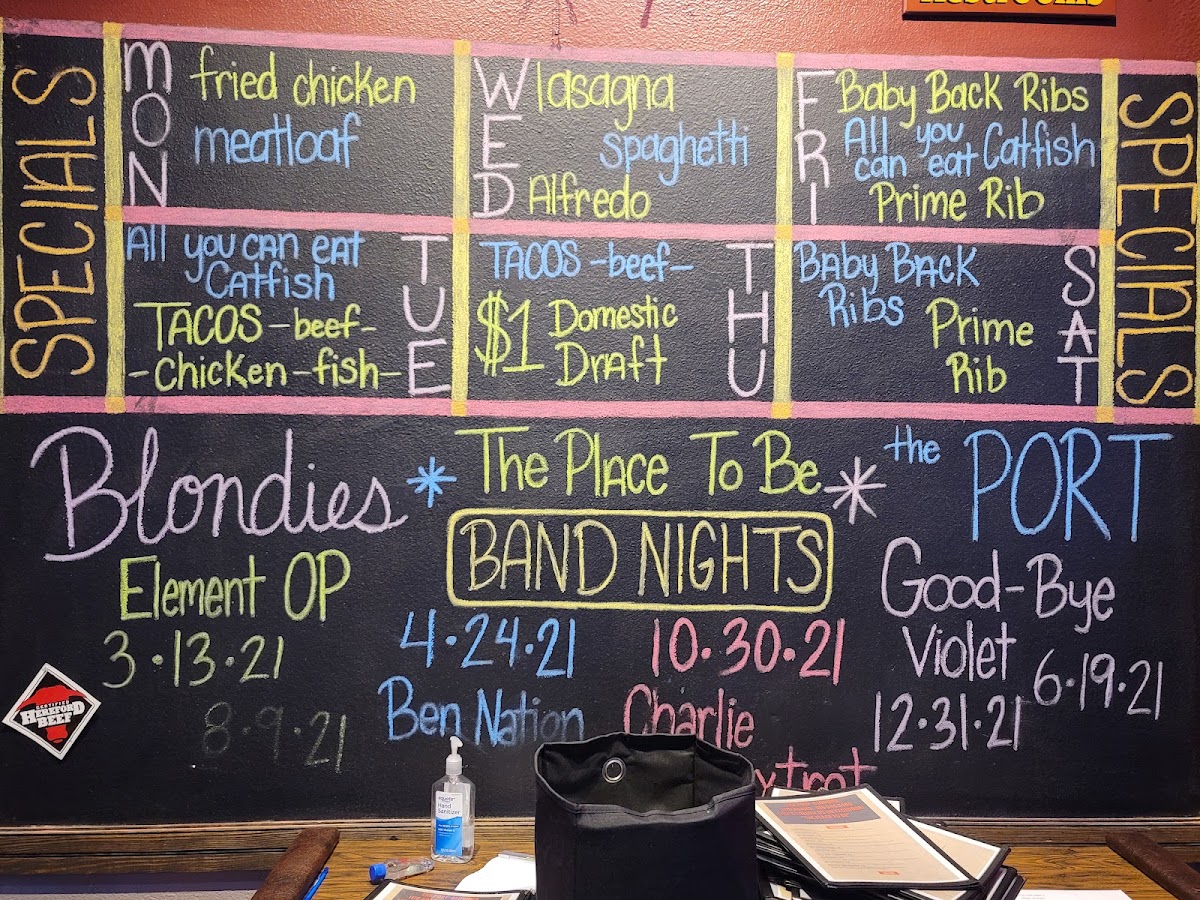 SPECIALS
MON
fried chicken
meatloaf
WED
lasagna
spaghetti
Alfredo
FRI
Baby Back Ribs
All you
can eat Catfish
Prime Rib
SPECIALS
All you can eat
Catfish
TACOS -beef-
-Chicken-fish-
TUE
TACOS -beef-
$1 Domestic
Draft
THU
Baby Back
Ribs
Prime
Rib
SAT
Blondies * The Place To Be * the PORT
BAND NIGHTS
Element OP
3.13.21
8.9.21
4.24.21
Ben Nation
10.30.21
Charlie
Good-Bye
Violet
6.19.21
12.31.21
CERTIFIED
HEREFORD
BEEF
Hand
Sanitizer